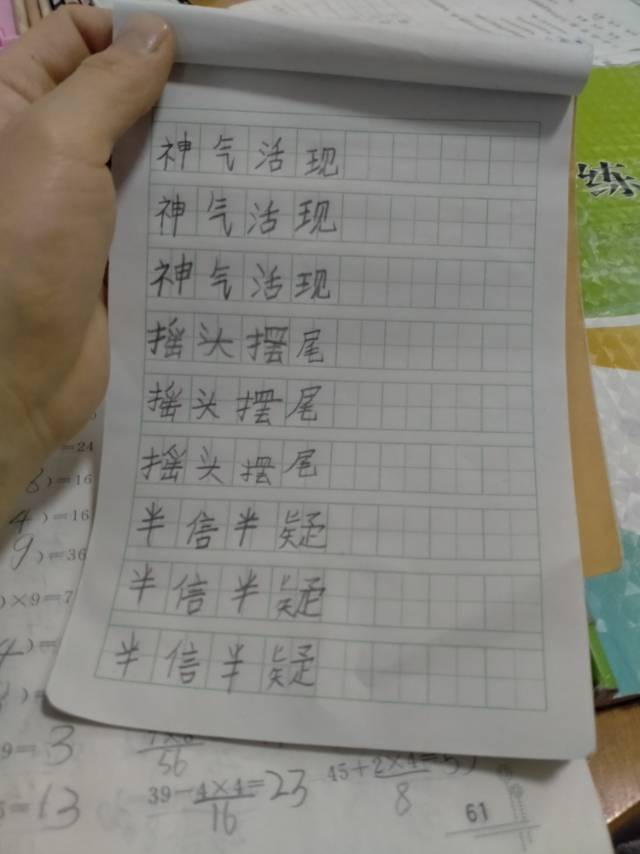 神气活现
练
神气活现
神气活现
摇头摆尾
摇头摆尾
=24
摇头摆尾
)=16
4)=16
半信半疑
9)=36
半信半疑
)×9=7
半信半疑
4)=
9=3
56
=13
39-4×4=23
16
45+2×4=
8
61